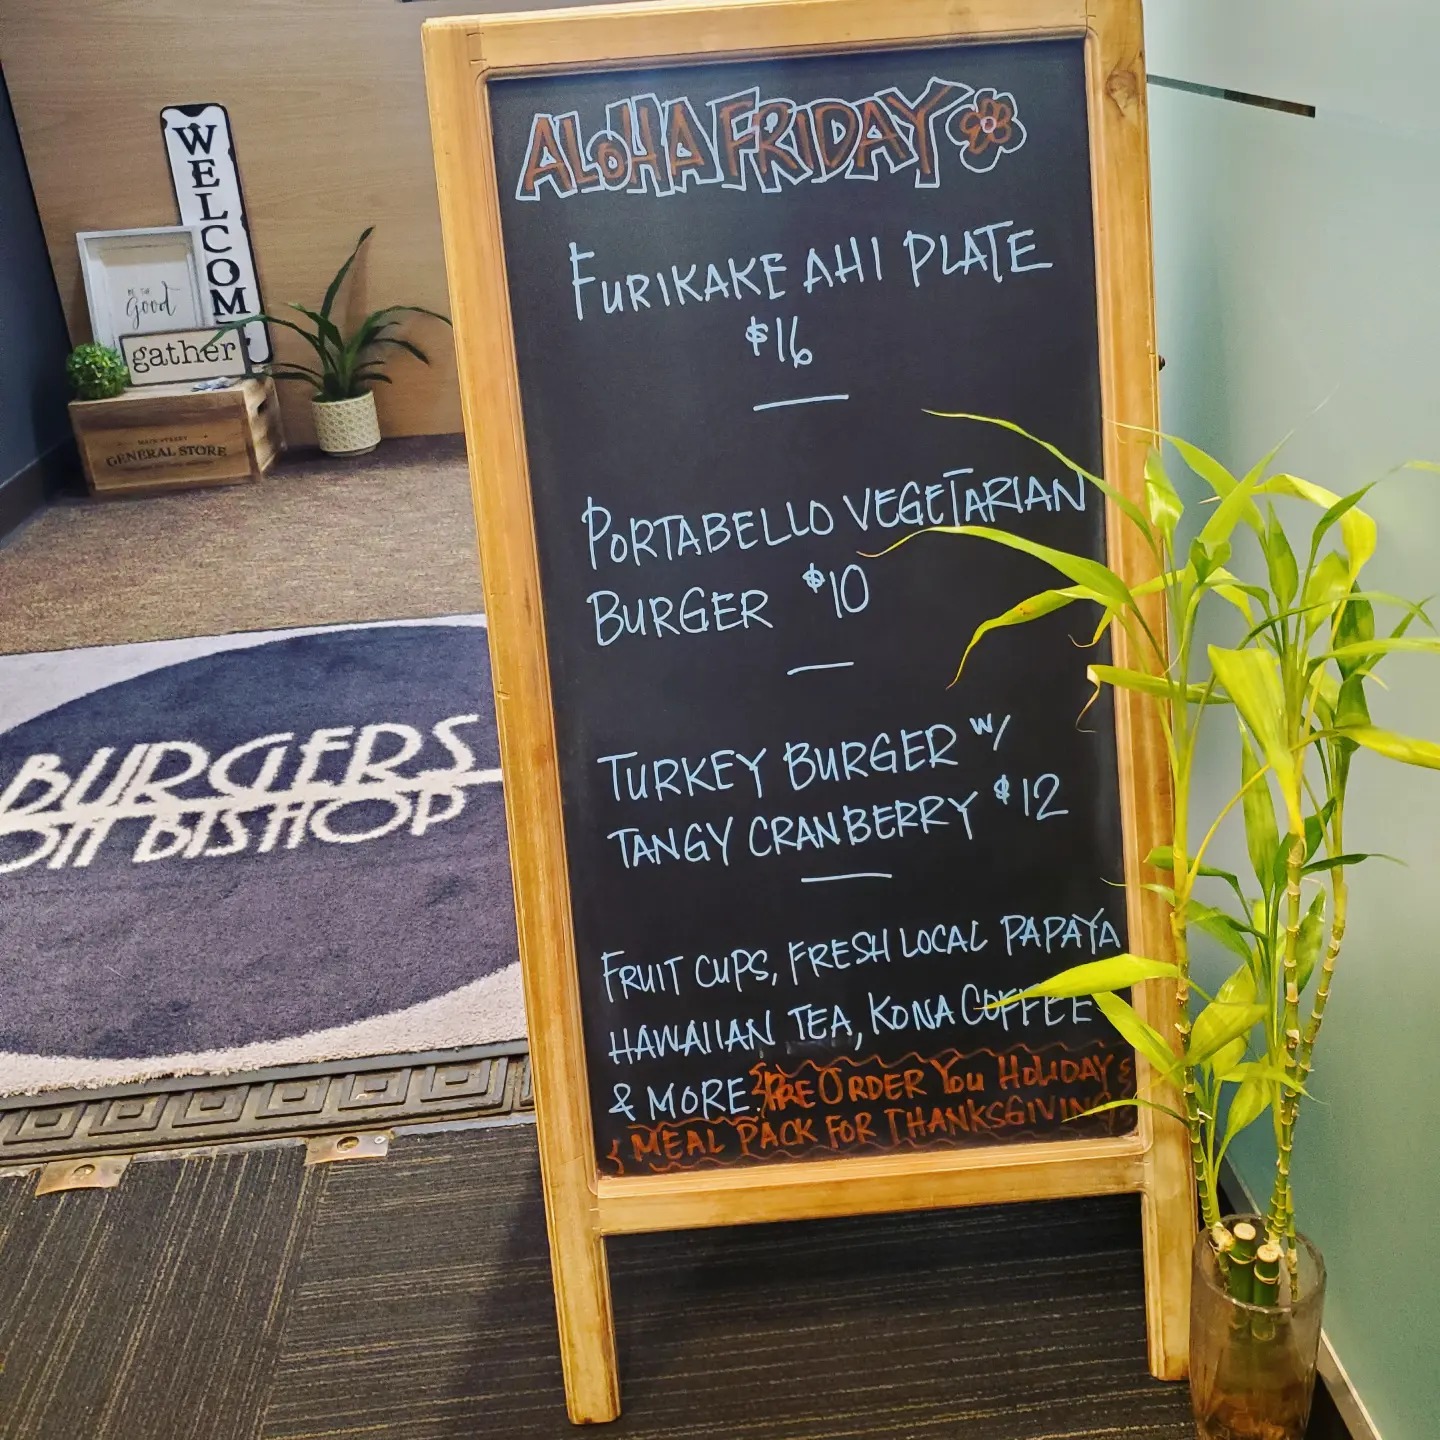 WELCOME
BE THE
Good
gather
MAIN STREET
GENERAL STORE
BURGERS
ON BISHOP
ALOHA FRIDAY
FURIKAKE AHI PLATE
$16
PORTABELLO VEGETARIAN
BURGER $10
TURKEY BURGER W/
TANGY CRANBERRY $12
FRUIT CUPS, FRESH LOCAL PAPAYA
HAWAIIAN TEA, KONA COFFEE
& MORE. PRE ORDER YOU HOLIDAY
MEAL PACK FOR THANKSGIVING